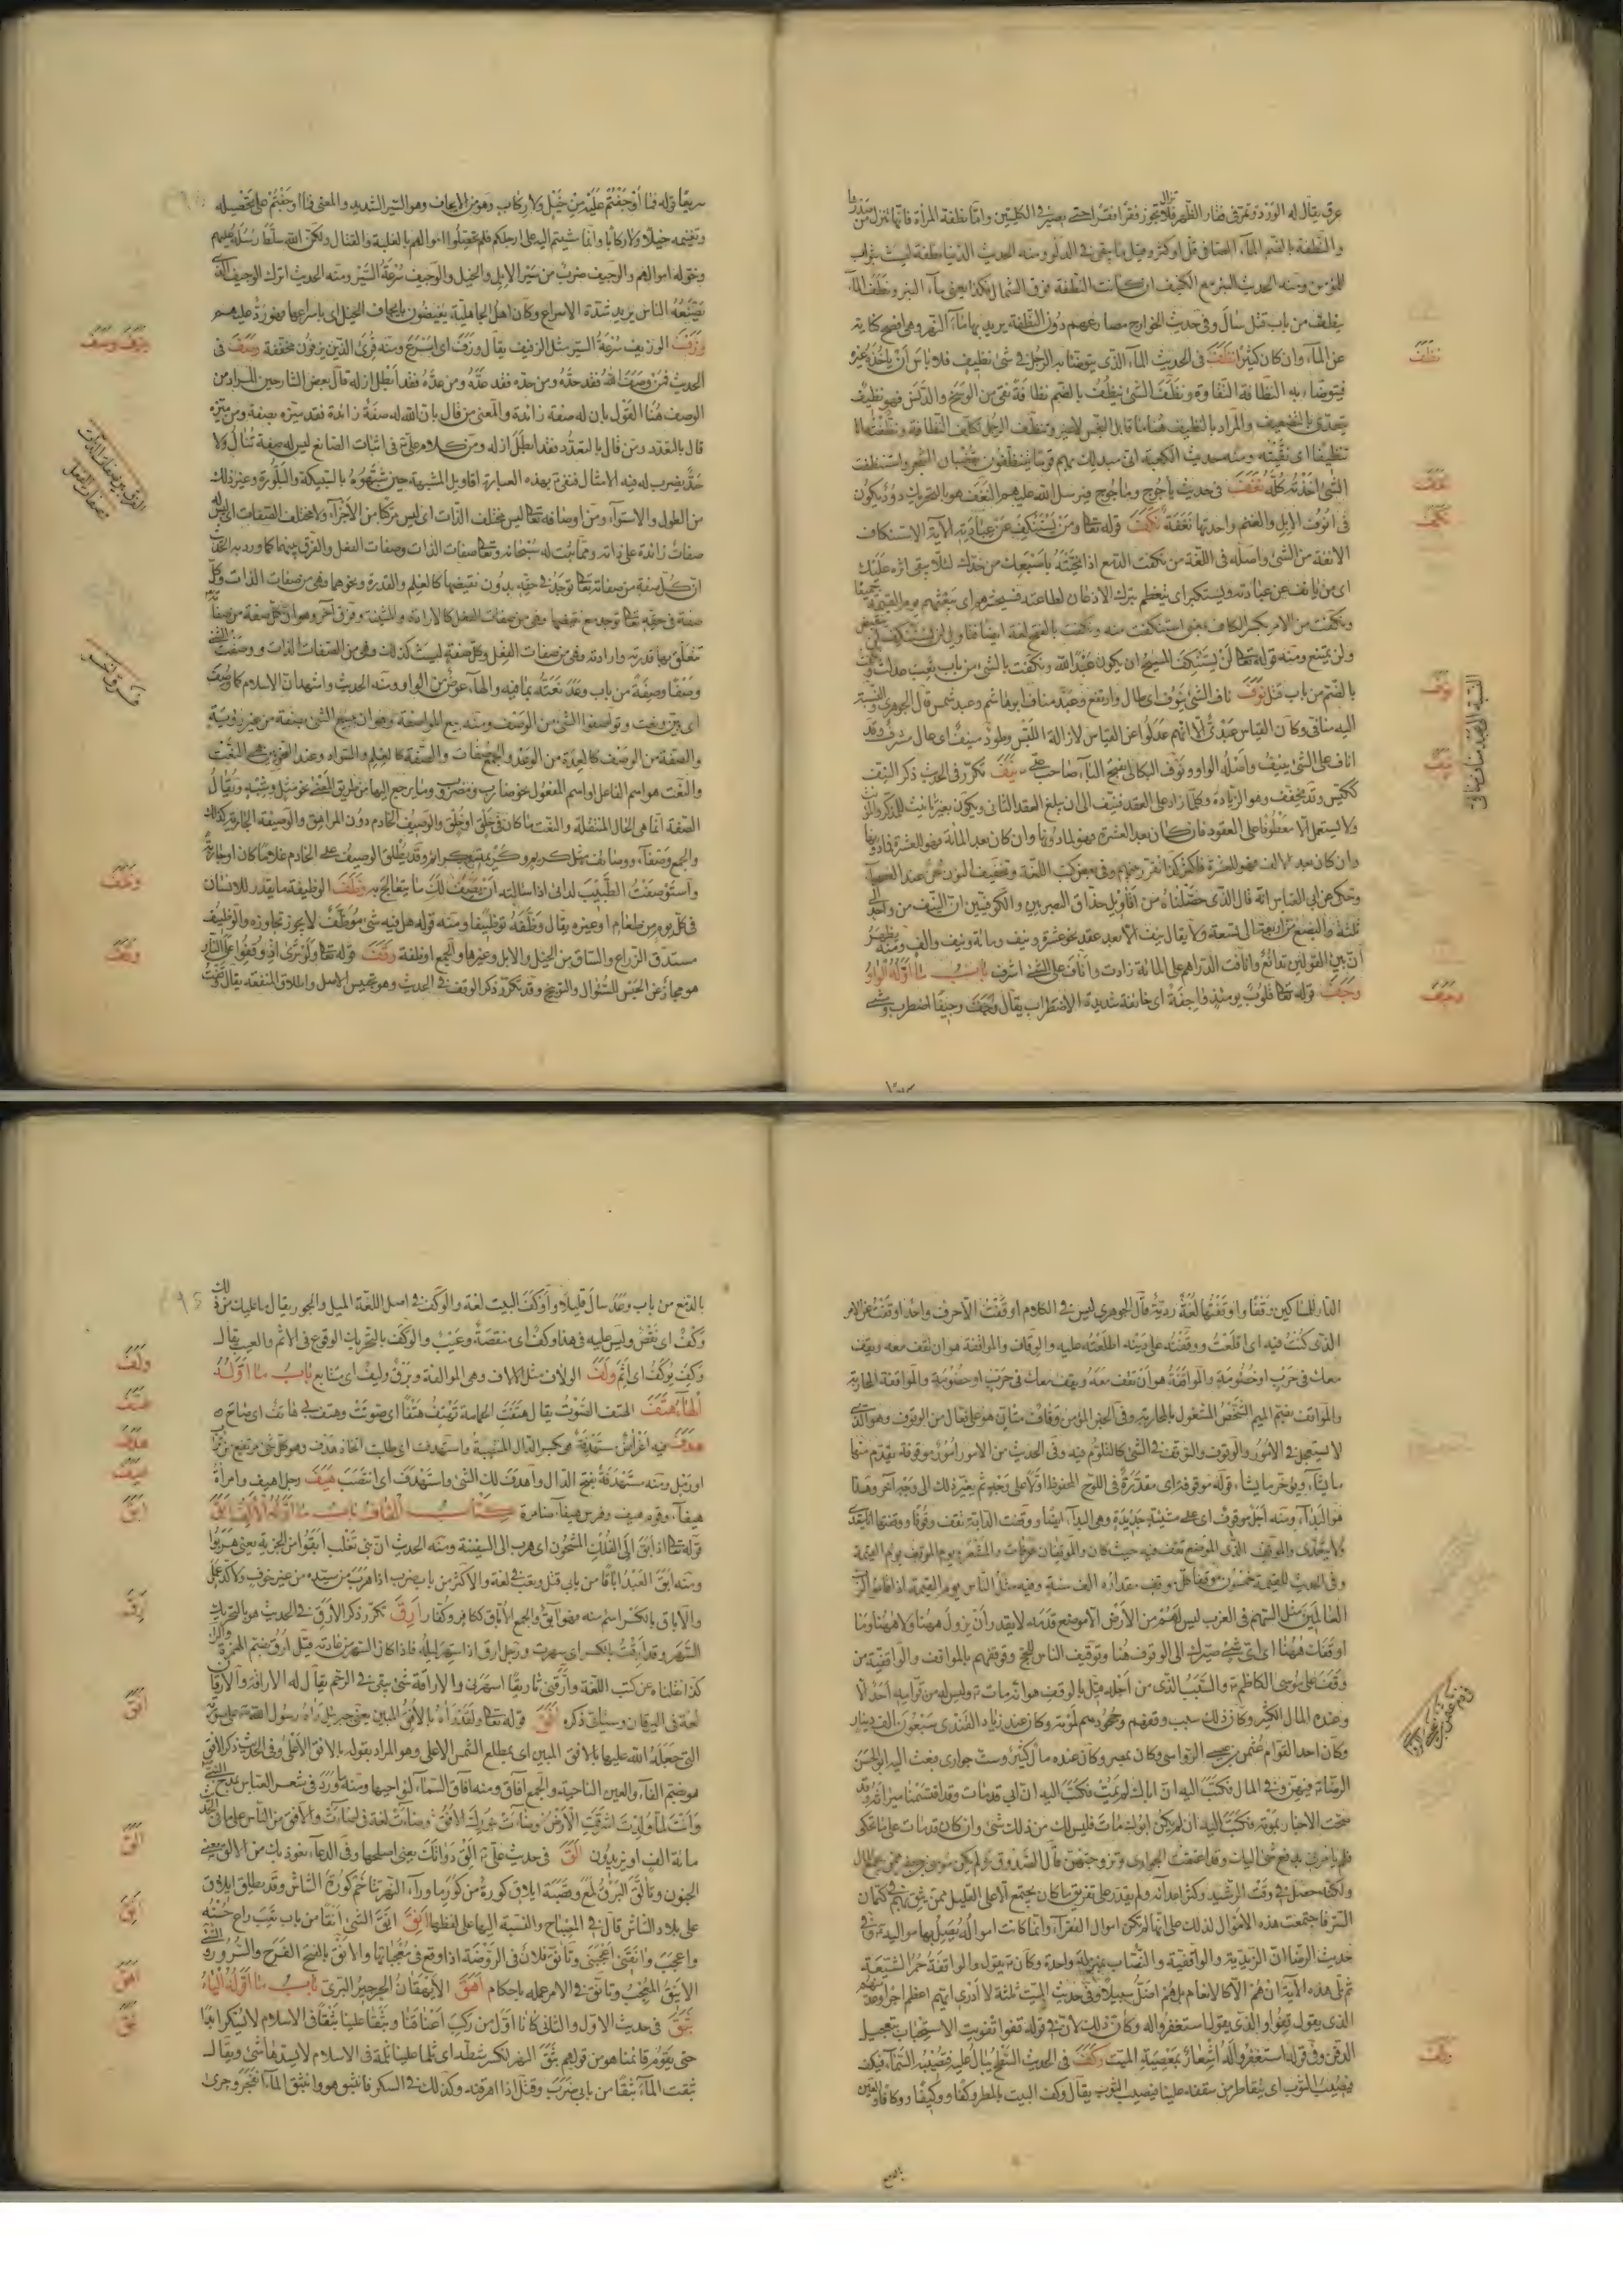 عرق يقال له الوذ وتمرق فقار الظهر فلا تجوز فقرا فقرا حتى يصير في الكليتين واما نطفة المرأة فانها تنزل من صدرها
والنطفة بالضم الماء الصافي قل او كثر وقيل ما يبقى في الدلو ومنه الحديث الدنيا نطفة ليست بثواب
للمؤمن ومنه الحديث البئر مع الكنيف ان كانت النطفة فوق الشمال فكذا يعني ماء البئر ونطف الماء
ينطف من باب قتل سال وفي حديث الخوارج مصارعهم دون النطفة يريد بها ماء النهر وهي افصح كناية
عن الماء وان كان كثيرا نظف في الحديث الماء الذي يتوضأ به الرجل في شيء نظيف فلا باس ان ياخذه غيره
فيتوضأ به النظافة النقاوة ونظف الشيء ينظف بالضم نظافة نقي من الوسخ والدنس فهو نظيف
يتعدى بالتضعيف والمراد بالنظيف هنا ما قابل النجس لا غير وتنظف الرجل تكلف النظافة ونظفته انا
تنظيفا اي نقيته
الشيء اخذته كله نغف في حديث ياجوج وماجوج فيرسل الله عليهم النغف هو بالتحريك دود يكون
في انوف الابل والغنم واحدتها نغفة نكف قوله تعا ومن يستنكف عن عبادته الآية الاستنكاف
الانفة من الشيء واصله في اللغة من نكفت الدمع اذا نحيته باصبعك من خدك لئلا يبقى اثره عليك
اي من يانف عن عبادته ويستكبر اي يتعظم بترك الاذعان لطاعته فسيحشرهم اي يبعثهم يوم القيمة جميعا
ونكفت من الامر بكسر الكاف بمعنى استنكفت منه ونكفت بالفتح لغة ايضا
ولن يمتنع ومنه قوله تعا لن يستنكف المسيح ان يكون عبدا لله ونكفت بالشيء من باب تعب
بالضم من باب قتل نوف ناف الشيء ينوف اي طال وارتفع وعبد مناف ابو هاشم وعبد شمس قال الجوهري والنسبة
اليه منافي وكان القياس عبدي الا انهم عدلوا عن القياس لازالة اللبس وطود منيف اي عال مشرف وقد
اناف على الشيء ينيف واصله الواو ونوف البكالي بفتح الباء صاحب علي ع نيف تكرر في الحديث ذكر النيف
ككيس وقد يخفف وهو الزيادة وكلما زاد على العقد فنيف الى ان يبلغ العقد الثاني ويكون بغير تانيث للمذكر والمؤنث
ولا يستعمل الا معطوفا على العقود فان كان بعد العشرة فهو لما دونها وان كان بعد المائة فهو للعشرة فما دونها
وان كان بعد الالف فهو للعشرة فاكثر كذا تقرر بينهم وفي بعض كتب اللغة وتخفيف النيف لحن عند الفصحاء
وحكى عن ابي العباس انه قال الذي حصلناه من اقاويل حذاق البصريين والكوفيين ان النيف من واحد الى
ثلثة والبضع من اربعة الى تسعة ولا يقال نيف الا بعد عقد نحو عشرة ونيف ومائة ونيف والف ونيف ويظهر
ان بين القولين تدافع وانافت الدراهم على المائة زادت واناف على الشيء اشرف باب ما اوله الواو
وجف قوله تعا قلوب يومئذ واجفة اي خائفة شديدة الاضطراب يقال وجف وجيفا اضطرب
نظف
نغف
نكف
نوف
نيف
وجف
النسبة الى عبد مناف منافي
سريعا قوله فما اوجفتم عليه من خيل ولا ركاب وهو من الايجاف وهو السير الشديد والمعنى فما اوجفتم على تحصيله
وتغنيمه خيلا ولا ركابا وانما مشيتم اليه على ارجلكم فلم تحصلوا اموالهم بالغلبة والقتال ولكن الله سلط رسله عليهم
وخوله اموالهم والوجيف ضرب من سير الابل والخيل والوجيف سرعة السير ومنه الحديث اترك الوجيف الذي
يصنعه الناس يريد شدة الاسراع وكان اهل الجاهلية يفيضون بايجاف الخيل اي باسراعها
وزف الوزيف سرعة السير مثل الزفيف يقال وزف اي اسرع ومنه قرئ الذين يزفون مخففة وصف في
الحديث فمن وصف الله فقد حده ومن حده فقد عده ومن عده فقد ابطل ازله قال بعض الشارحين المراد من
الوصف هنا القول بان له صفة زائدة والمعنى من قال بان لله صفة زائدة فقد ميزه بصفة ومن ميزه
قال بالتعدد ومن قال بالتعدد فقد ابطل ازله ومن كلامه علي ع في اثبات الصانع ليس له صفة تنال ولا
حد يضرب له فيه الامثال فنفى ع بهذه العبارة اقاويل المشبهة حين شبهوه بالسبيكة والبلورة وغير ذلك
من الطول والاستواء ومن اوصافه تعا ليس مختلف الذات اي ليس مركبا من الاجزاء ولا مختلف الصفات
صفات زائدة على ذاته ومما ثبت له سبحانه وتعا صفات الذات وصفات الفعل والفرق بينهما كما وردت به
ان كل صفة من صفاته تعا توجد في حقه بدون نقيضها كالعلم والقدرة ونحوهما فهي من صفات الذات وكل
صفة في حقه تعا توجد مع نقيضها فهي من صفات الفعل كالارادة والمشيئة وفرق آخر وهو ان كل صفة من صفاته
تتعلق بها قدرته وارادته فهي من صفات الفعل وكل صفة ليست كذلك فهي من الصفات الذات ووصفت الشيء
وصفا وصفة من باب وعد نعته بما فيه والهاء عوض من الواو ومنه الحديث واشهد ان الاسلام كما وصف
اي بين ونعت وتواصفوا الشيء من الوصف ومنه بيع المواصفة وهو ان يبيع الشيء بصفة من غير رؤية
والصفة من الوصف كالعدة من الوعد والجمع صفات والصفة كالعلم والسواد وعند النحويين هي النعت
والنعت هو اسم الفاعل او اسم المفعول نحو ضارب ومضروب وما يرجع اليهما من طريق المعنى نحو مثل وشبه ويقال
الصفة انما هي الحال المنتقلة والنعت ما كان في خلق او خلق والوصيف الخادم دون المراهق والوصيفة الجارية كذلك
والجمع وصفاء ووصائف مثل كريم وكريمة وكرائم وقد يطلق الوصيف على الخادم غلاما كان او جارية
واستوصفت الطبيب لدائي اذا سالته ان يصف لك ما يتعالج به وظف الوظيفة ما يقدر للانسان
في كل يوم من طعام او غيره يقال وظفه توظيفا ومنه قوله هل فيه شيء موظف لا يجوز تجاوزه والوظيف
مستدق الذراع والساق من الخيل والابل وغيرها والجمع اوظفة وقف قوله تعا ولو ترى اذ وقفوا على النار
هو مجاز عن الحبس للسؤال والتوبيخ وقد تكرر ذكر الوقف في الحديث وهو تحبيس الاصل واطلاق المنفعة يقال وقفت
وزف وصف
وظف
وقف
الفرق بين صفات الذات
وصفات الفعل
فرق آخر
الدار للمساكين وقفا واوقفتها لغة ردية قال الجوهري ليس في الكلام اوقفت الا حرف واحد اوقفت عن الامر
الذي كنت فيه اي اقلعت ووقفته على ذنبه اطلعته عليه والوقاف والمواقفة هو ان تقف معه ويقف
معك في حرب او خصومة والمواقفة هو ان تقف معه ويقف معك في حرب او خصومة والمواقفة المحاربة
والمواقف بضم الميم الشخص المشغول بالمحاربة وفي الخبر المؤمن وقاف متان هو على فعال من الوقوف وهو الذي
لا يستعجل في الامور والوقوف والتوقف في الشيء كالتلوم فيه وفي الحديث من الامور امور موقوفة يقدم منها
ما يشاء ويؤخر ما يشاء قوله موقوفة اي مقدرة في اللوح المحفوظ اولا على وجه ثم يغير ذلك الى وجه آخر وهذا
هو البداء ومنه اجل موقوف اي على مشية جديدة وهي البداء ايضا ووقفت الدابة تقف وقوفا ووقفتها انا يتعدى
ولا يتعدى والموقف الذي الموضع تقف فيه حيث كان والموقفان عرفات والمشعر ويوم الموقف يوم القيمة
وفي الحديث للقيمة خمسون موقفا كل موقف مقداره الف سنة وفيه مثل الناس يوم القيمة اذا قاموا لرب
العالمين مثل السهم في القرب ليس لهم من الارض الا موضع قدمه لا يقدر ان يزول ههنا ولا ههنا وما
اوقفك ههنا اي اي شيء صيرك الى الوقوف هنا وتوقيف الناس للحج وقوفهم بالمواقف والواقفية من
وقف على موسى الكاظم ع والسبب الذي من اجله قيل بالوقف هو انه مات ع وليس له من قوامه احد الا
وعنده المال الكثير وكان ذلك سبب وقفهم وجحودهم لموته وكان عند زياد القندي سبعون الف دينار
وكان احد القوام عثمن بن عيسى الرواسي وكان بمصر وكان عنده مال كثير وست جواري فبعث اليه ابو الحسن
الرضا ع فيهن وفي المال فكتب اليه ان اباك لم يمت فكتب اليه ان ابي قد مات وقد اقتسمنا ميراثه وقد
صحت الاخبار بموته فكتب اليه ان لم يكن ابوك مات فليس لك من ذلك شيء وان كان قد مات على ما تحكي
فلم يامرني بدفع شيء اليك وقد اعتقت الجواري وتزوجتهن قال الصدوق ره لم يكن موسى بن جعفر ممن يجمع المال
ولكنه حصل في وقت الرشيد وكثر اعدائه ولم يقدر على تفريق ما كان يجتمع الا على القليل ممن يثق بهم في كتمان
السر فاجتمعت هذه الاموال لذلك على انها لم تكن اموال الفقراء وانما كانت اموالا يصل بها مواليه ع وفي
حديث الرضا ان الزيدية والواقفية والنصاب بمنزلة واحدة وكان ع يقول والواقفة حمر الشيعة
ثم تلى هذه الآية ان هم الا كالانعام بل هم اضل سبيلا وفي حديث الميت ثلثة لا ادري ايهم اعظم اجرا وعد منهم
الذي يقول قفوا والذي يقول استغفروا له وكان ذلك لان في قوله قفوا تفويت الاستحباب تعجيل
الدفن وفي قوله استغفروا له اشعار بمعصية الميت وكف في الحديث السطح يبال عليه فتصيبه السماء فيكف
فيصيب الثوب اي يتقاطر من سقفه علينا فيصيب الثوب يقال وكف البيت بالمطر وكفا ووكيفا ووكافا والعين
وكف
بالدمع
بالدمع من باب وعد سال قليلا واوكف البيت لغة والوكف في اصل اللغة الميل والجور يقال ما عليك من ذلك
وكف اي نقص وليس عليه في هذا وكف اي منقصة وعيب والوكف بالتحريك الوقوع في الاثم والعيب يقال
وكف يوكف اي اثم ولف الولاف مثل الالاف وهي الموالفة وبرق وليف اي متتابع باب ما اوله
الهاء هتف الهتف الصوت يقال هتفت الحمامة تهتف هتفا اي صوتت وهتف بي هاتف اي صاح
هدف فيه اغراض مستهدفة هي بكسر الدال المنتصبة واستهدف اي طلب اتخاذ هدف وهو كل شيء مرتفع من بناء
او رمل ومنه مستهدفة بفتح الدال واهدف لك الشيء واستهدف اي انتصب هيف رجل اهيف وامرأة
هيفاء وقوم هيف وفرس هيفاء ضامرة كتاب القاف باب ما اوله الالف ابق
قوله تعا اذ ابق الى الفلك المشحون اي هرب الى السفينة ومنه الحديث ان بني تغلب ابقوا من الجزية يعني هربوا
ومنه ابق العبد اباقا من باب قتل وتعب في لغة والاكثر من باب ضرب اذا هرب من سيده من غير خوف ولا كد عمل
والاباق بالكسر اسم منه فهو آبق والجمع الاباق ككافر وكفار ارق تكرر ذكر الارق في الحديث هو بالتحريك
السهر وقد ارقت بالكسر اي سهرت ورجل ارق اذا سهر ليله فاذا كان السهر من عادته قيل ارق بضم الهمزة والراء
كذا نقلناه عن كتب اللغة وارقني تاريقا اسهرني والاراقة شيء يبقى في الرحم يقال له الاراقة والارقان
لغة في اليرقان وسياتي ذكره افق قوله تعا ولقد رآه بالافق المبين يعني جبرئيل رآه رسول الله ص على صورته
التي جعله الله عليها بالافق المبين اي بمطلع الشمس الاعلى وهو المراد بقوله بالافق الاعلى وفي الحديث ذكر الافق
هو بضم الفاء والعين الناحية والجمع آفاق ومنه آفاق السماء لنواحيها ومنه ما ورد في شعر العباس يمدح النبي
وانت لما ولدت اشرقت الارض وضاءت بنورك الافق وضاءت لغة في اضاءت والافق من الناس على ما في الحديث
مائة الف او يزيدون الق في حديث علي ع الق دواتك يعني اصلحها وفي الدعاء نعوذ بك من الالق يعني
الجنون وتالق البرق لمع وقصبة ايلاق كورة من كور ما وراء النهر تتاخم كورة الشاش وقد يطلق ايلاق
على بلاد الشاش قال في المصباح والنسبة اليها على لفظها انق انق الشيء انقا من باب تعب راع حسنه
واعجب وآنقني اعجبني وتانق فلان في الروضة اذا وقع في معجباتها والانق بالفتح الفرح والسرور والشيء
الانيق المعجب وتانق في الامر عمله باحكام اهق الايهقان الجرجير البري باب ما اوله الباء
بثق في حديث الاول والثاني كانا اول من ركب اعناقنا وبثقا علينا بثقا في الاسلام لا يسكر ابدا
حتى يقوم قائمنا هو من قولهم بثق النهر كسر شطه اي ثلما علينا ثلمة في الاسلام لا يسدها شيء ويقال
بثقت الماء بثقا من بابي ضرب وقتل اذا اهرقته وكذلك في السكر فانبثق هو وانبثق الماء انفجر وجرى
ولف
هتف
هدف
هيف
ابق
ارق
افق
الق
انق
اهق
بثق